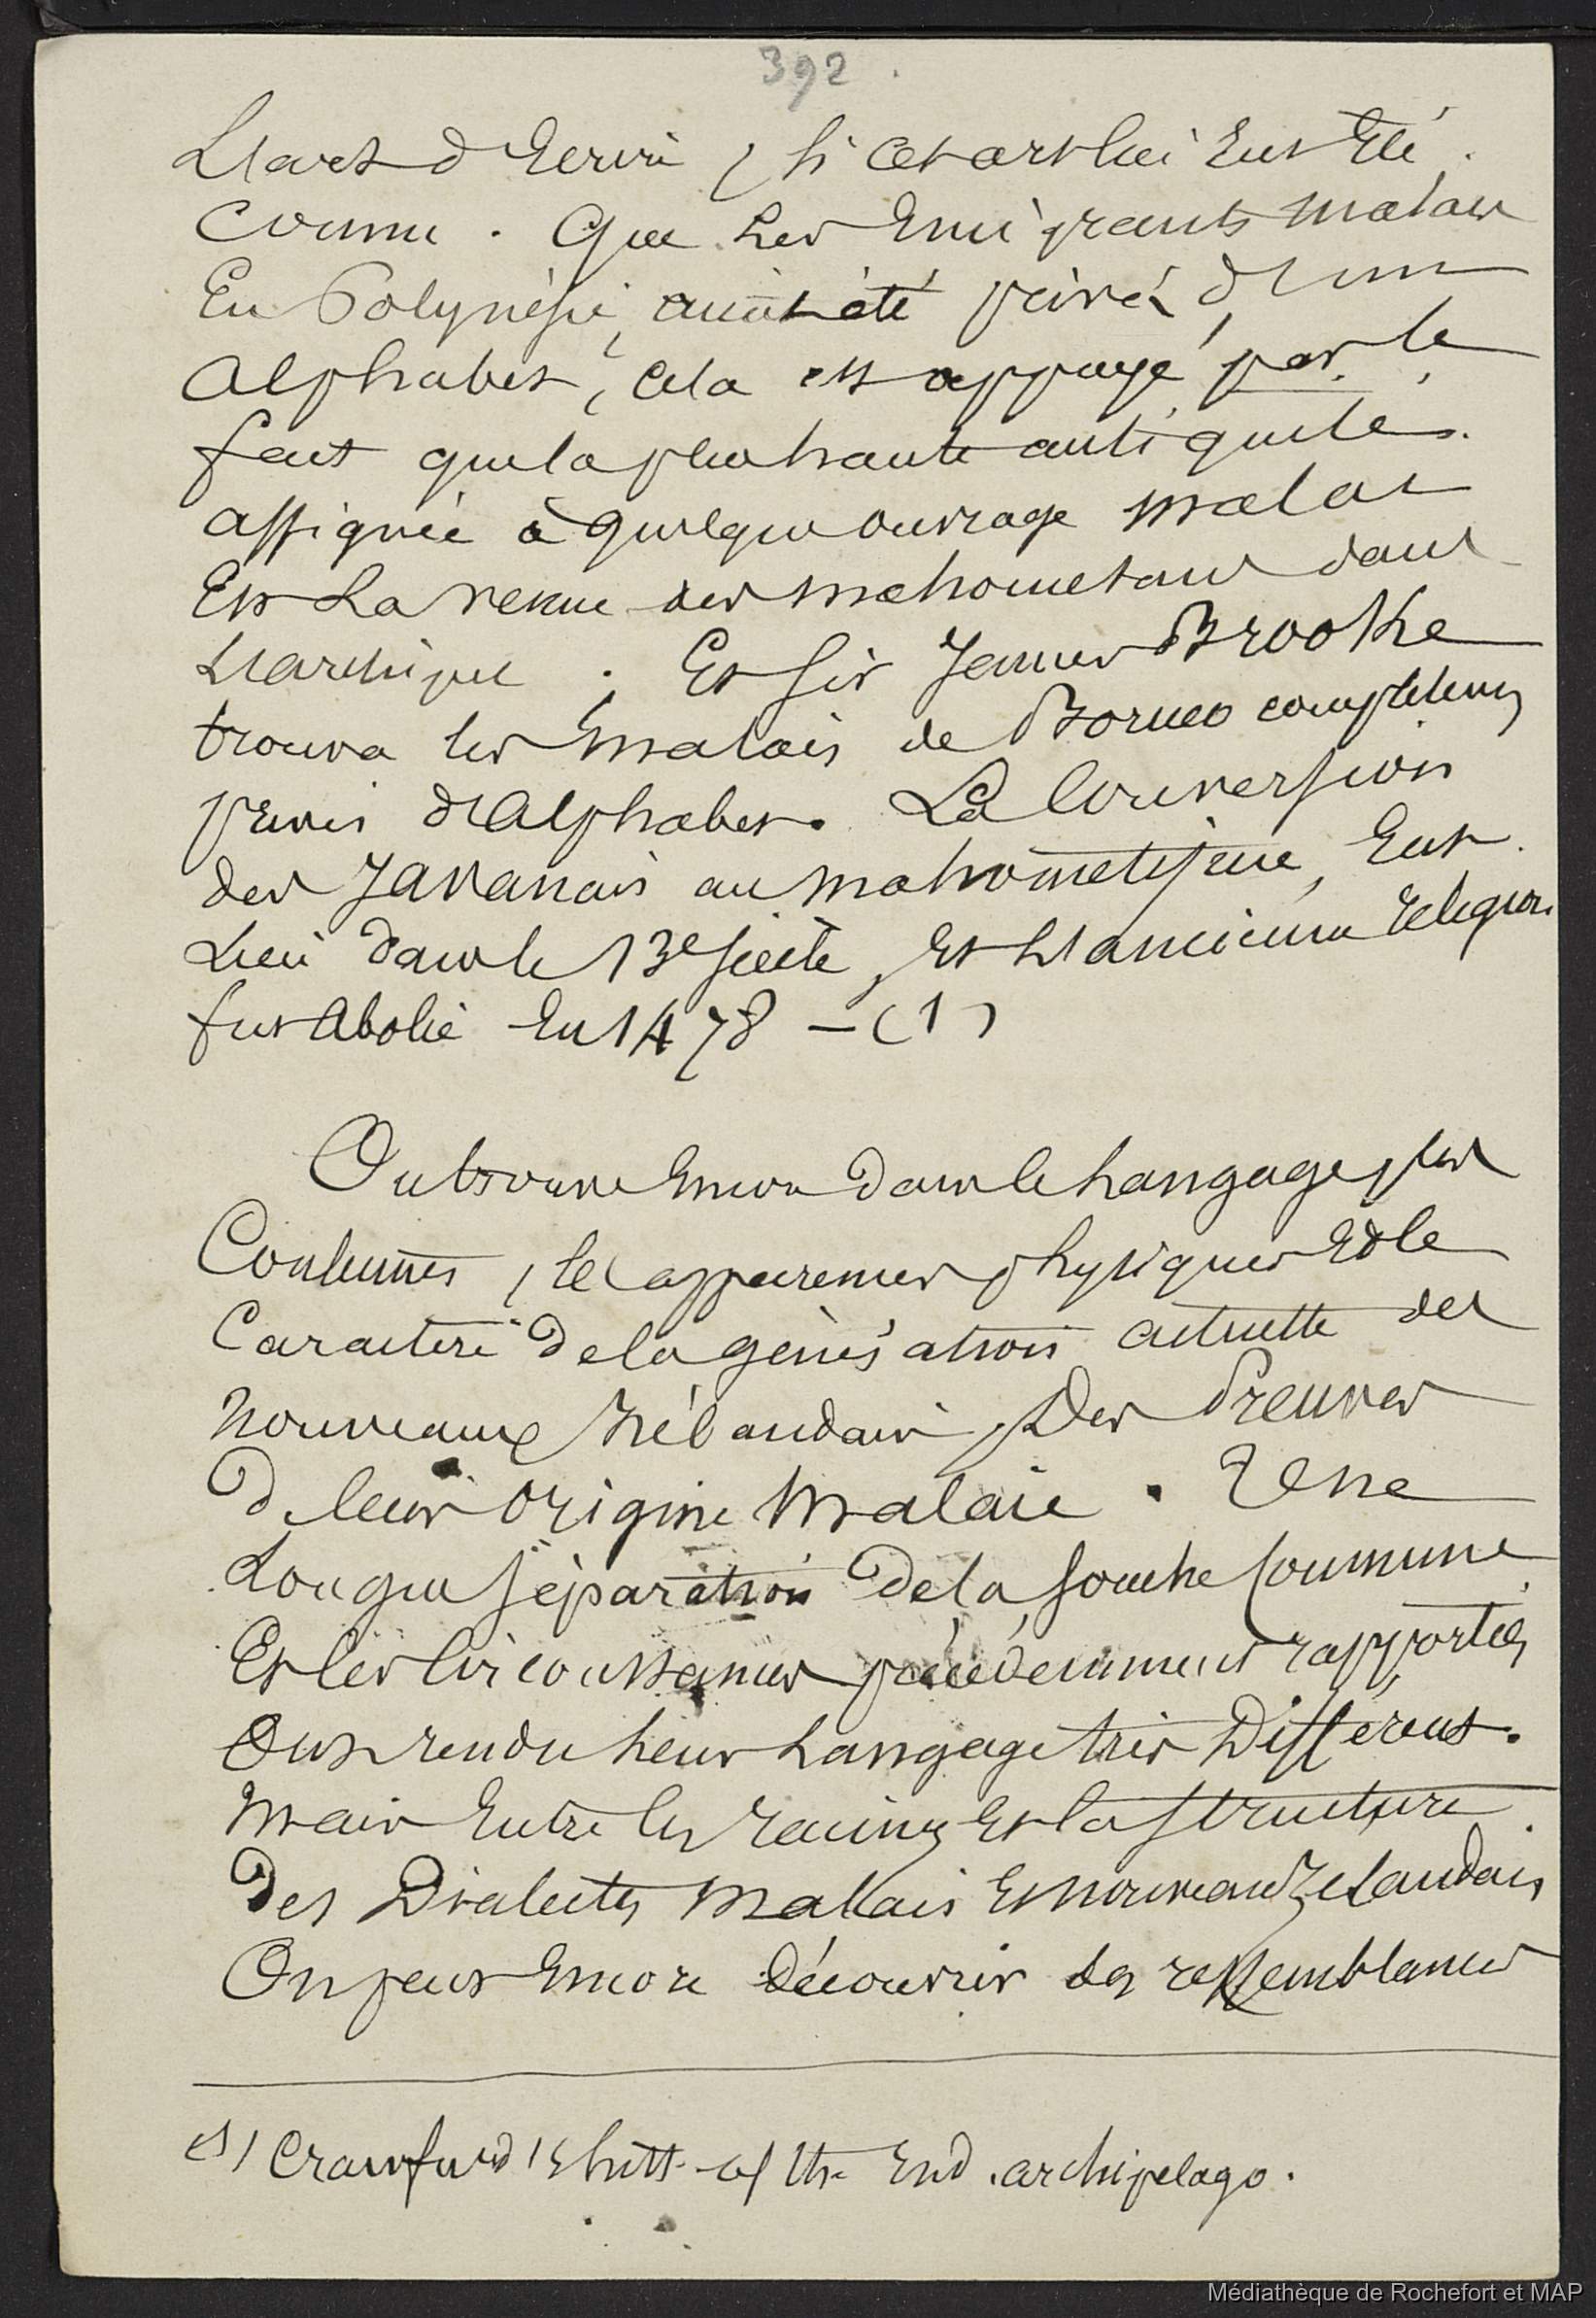 392
L'art d'Ecrire, si cet art lui Eut Eté
Connu. Que les Emigrants malais
En Polynésie, aient été privés d'un
Alphabet, cela est appuyé par le
fait que la plus haute antiquité
assignée à quelque ouvrage malai
Est la venue des mahometans dans
L'archipel. Et Sir James Brooke
trouva les malais de Borneo complétemt
privés d'Alphabet. La Conversion
des Javanais au mahométisme, Eut
Lieu dans le 13e siècle, Et L'ancienne religion
fut Abolie En 1478 – (1)
On trouve Encore dans le Langage, les
Coutumes, les apparences physiques Et le
Caractère de la génération actuelle des
nouveaux Zélandais, Des Preuves
De leur Origine Malaie. Une
Longue séparation De la souche Commune
Et les Circonstances précédemment rapportées
Ont rendu Leur Langage très Différent.
mais Entre les racines Et la structure
Des Dialectes malais Et nouveaux Zelandais
On peut Encore découvrir des ressemblances
(1) Crawfurd's hist. of the Ind. archipelago.
Médiathèque de Rochefort et MAP